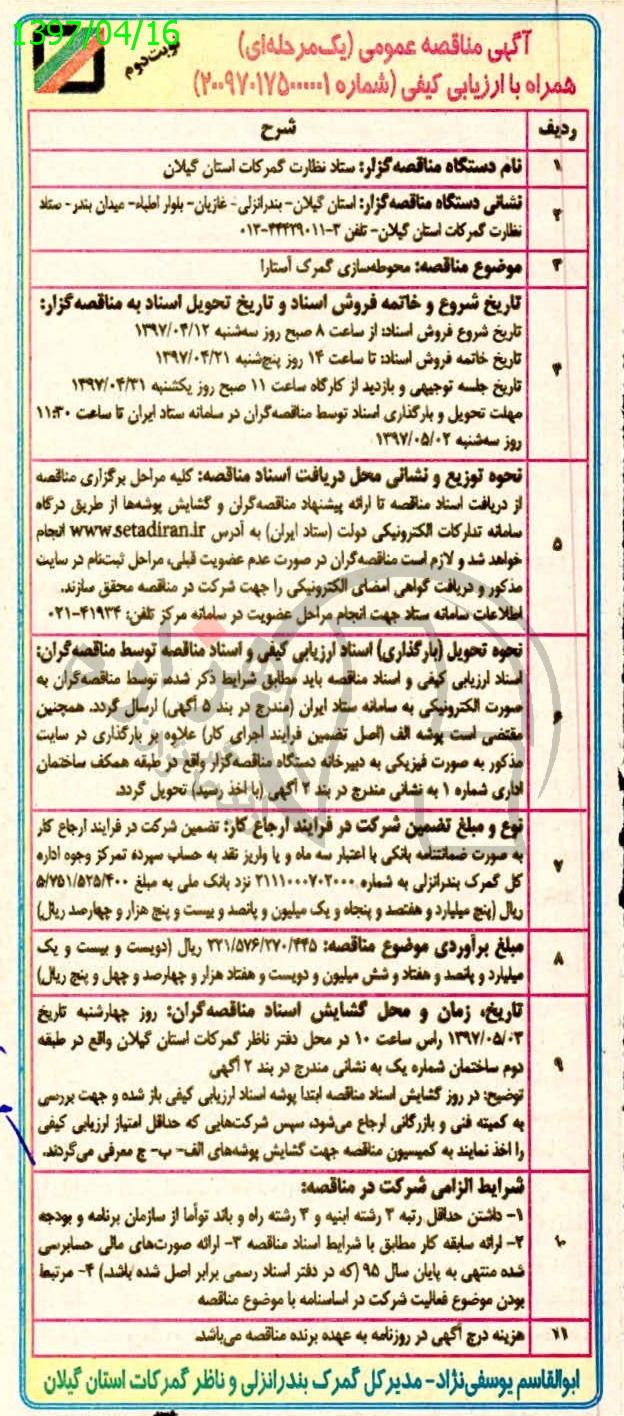 1397/04/16
نوبت دوم
آگهی مناقصه عمومی (یک‌مرحله‌ای)
همراه با ارزیابی کیفی (شماره ۲۰۰۹۷۰۱۷۵۰۰۰۰۰۱)
ردیف شرح
۱ نام دستگاه مناقصه‌گزار: ستاد نظارت گمرکات استان گیلان
۲ نشانی دستگاه مناقصه‌گزار: استان گیلان- بندرانزلی- غازیان- بلوار اطباء- میدان بندر- ستاد
نظارت گمرکات استان گیلان- تلفن ۳-۴۴۴۲۹۰۱۱-۰۱۳
۳ موضوع مناقصه: محوطه‌سازی گمرک آستارا
۴ تاریخ شروع و خاتمه فروش اسناد و تاریخ تحویل اسناد به مناقصه‌گزار:
تاریخ شروع فروش اسناد: از ساعت ۸ صبح روز سه‌شنبه ۱۳۹۷/۰۴/۱۲
تاریخ خاتمه فروش اسناد: تا ساعت ۱۴ روز پنج‌شنبه ۱۳۹۷/۰۴/۲۱
تاریخ جلسه توجیهی و بازدید از کارگاه ساعت ۱۱ صبح روز یکشنبه ۱۳۹۷/۰۴/۳۱
مهلت تحویل و بارگذاری اسناد توسط مناقصه‌گران در سامانه ستاد ایران تا ساعت ۱۱:۳۰
روز سه‌شنبه ۱۳۹۷/۰۵/۰۲
۵ نحوه توزیع و نشانی محل دریافت اسناد مناقصه: کلیه مراحل برگزاری مناقصه
از دریافت اسناد مناقصه تا ارائه پیشنهاد مناقصه‌گران و گشایش پوشه‌ها از طریق درگاه
سامانه تدارکات الکترونیکی دولت (ستاد ایران) به آدرس www.setadiran.ir انجام
خواهد شد و لازم است مناقصه‌گران در صورت عدم عضویت قبلی، مراحل ثبت‌نام در سایت
مذکور و دریافت گواهی امضای الکترونیکی را جهت شرکت در مناقصه محقق سازند.
اطلاعات سامانه ستاد جهت انجام مراحل عضویت در سامانه مرکز تلفن: ۴۱۹۳۴-۰۲۱
۶ نحوه تحویل (بارگذاری) اسناد ارزیابی کیفی و اسناد مناقصه توسط مناقصه‌گران:
اسناد ارزیابی کیفی و اسناد مناقصه باید مطابق شرایط ذکر شده، توسط مناقصه‌گران به
صورت الکترونیکی به سامانه ستاد ایران (مندرج در بند ۵ آگهی) ارسال گردد. همچنین
مقتضی است پوشه الف (اصل تضمین فرایند اجرای کار) علاوه بر بارگذاری در سایت
مذکور به صورت فیزیکی به دبیرخانه دستگاه مناقصه‌گزار واقع در طبقه همکف ساختمان
اداری شماره ۱ به نشانی مندرج در بند ۲ آگهی (با اخذ رسید) تحویل گردد.
۷ نوع و مبلغ تضمین شرکت در فرایند ارجاع کار: تضمین شرکت در فرایند ارجاع کار
به صورت ضمانتنامه بانکی با اعتبار سه ماه و یا واریز نقد به حساب سپرده تمرکز وجوه اداره
کل گمرک بندرانزلی به شماره ۲۱۱۱۰۰۰۷۰۲۰۰۰ نزد بانک ملی به مبلغ ۵/۷۵۱/۵۲۵/۴۰۰
ریال (پنج میلیارد و هفتصد و پنجاه و یک میلیون و پانصد و بیست و پنج هزار و چهارصد ریال)
۸ مبلغ برآوردی موضوع مناقصه: ۲۲۱/۵۷۶/۲۷۰/۴۴۵ ریال (دویست و بیست و یک
میلیارد و پانصد و هفتاد و شش میلیون و دویست و هفتاد هزار و چهارصد و چهل و پنج ریال)
۹ تاریخ، زمان و محل گشایش اسناد مناقصه‌گران: روز چهارشنبه تاریخ
۱۳۹۷/۰۵/۰۳ راس ساعت ۱۰ در محل دفتر ناظر گمرکات استان گیلان واقع در طبقه
دوم ساختمان شماره یک به نشانی مندرج در بند ۲ آگهی
توضیح: در روز گشایش اسناد مناقصه ابتدا پوشه اسناد ارزیابی کیفی باز شده و جهت بررسی
به کمیته فنی و بازرگانی ارجاع می‌شود، سپس شرکت‌هایی که حداقل امتیاز ارزیابی کیفی
را اخذ نمایند به کمیسیون مناقصه جهت گشایش پوشه‌های الف- ب- ج معرفی می‌گردند.
۱۰ شرایط الزامی شرکت در مناقصه:
۱- داشتن حداقل رتبه ۳ رشته ابنیه و ۳ رشته راه و باند توأما از سازمان برنامه و بودجه
۲- ارائه سابقه کار مطابق با شرایط اسناد مناقصه ۳- ارائه صورت‌های مالی حسابرسی
شده منتهی به پایان سال ۹۵ (که در دفتر اسناد رسمی برابر اصل شده باشد.) ۴- مرتبط
بودن موضوع فعالیت شرکت در اساسنامه با موضوع مناقصه
۱۱ هزینه درج آگهی در روزنامه به عهده برنده مناقصه می‌باشد.
ابوالقاسم یوسفی‌نژاد- مدیرکل گمرک بندرانزلی و ناظر گمرکات استان گیلان